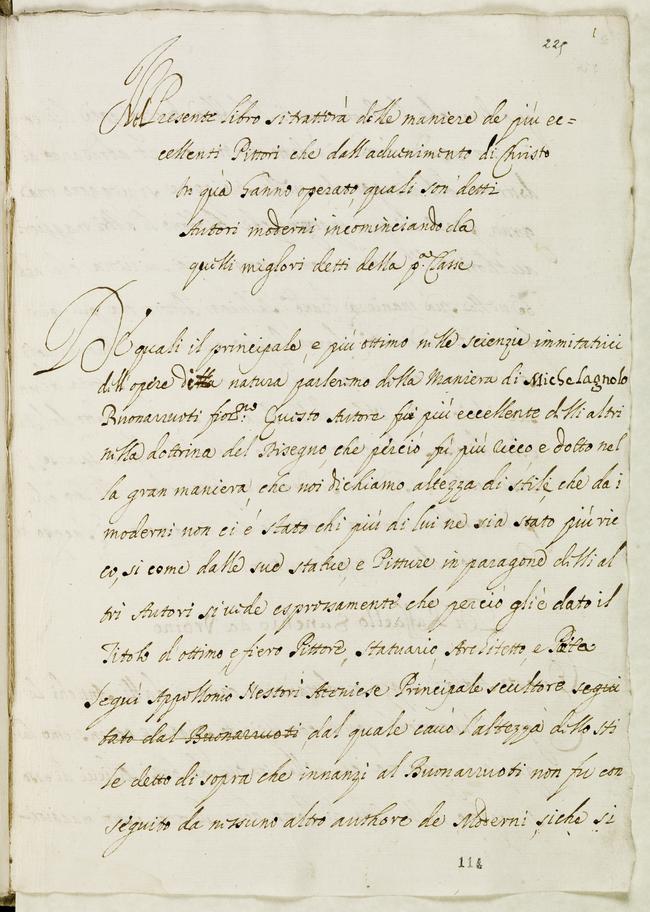 225
1
Nel Presente libro si tratterà delle maniere de più ec=
cellenti Pittori che dall'aduenimento di Christo
In quà hanno operato, quali son' detti
Autori moderni incominciando da
quelli migliori detti della p.ª Classe
De quali il principale, e più ottimo nelle scienzie immitatrici
dell'opere della natura parleremo della Maniera di Michelagnolo
Buonarruoti fior.no Questo Autore fù più eccellente delli altri
nella dottrina del Disegno, che perciò fù più ricco, e dotto nel
la gran maniera, che noi dichiamo altezza di stile, che da i
moderni non ci è stato chi più di lui ne sia stato più ric
co, si come dalle sue statue, e Pitture in paragone delli al
tri Autori si uede espressamente che perciò gli è dato il
Titolo d'ottimo e fiero Pittore, statuario, Architetto, e Poeta
segui Appollonio Nestori Ateniese Principale scultore segui
tato dal Buonarruoti, dal quale cauò l'altezza dello sti
le detto di sopra che innanzi al Buonarruoti non fù con
seguito da nessuno altro authore de Moderni, siche si
114